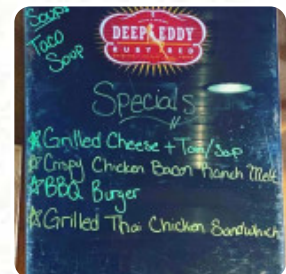 Soups
Taco
Soup
DEEP EDDY
RUBY RED
Specials
☆Grilled Cheese + Tom/Soup
☆Crispy Chicken Bacon Ranch Melt
☆BBQ Burger
☆Grilled Thai Chicken Sandwhich